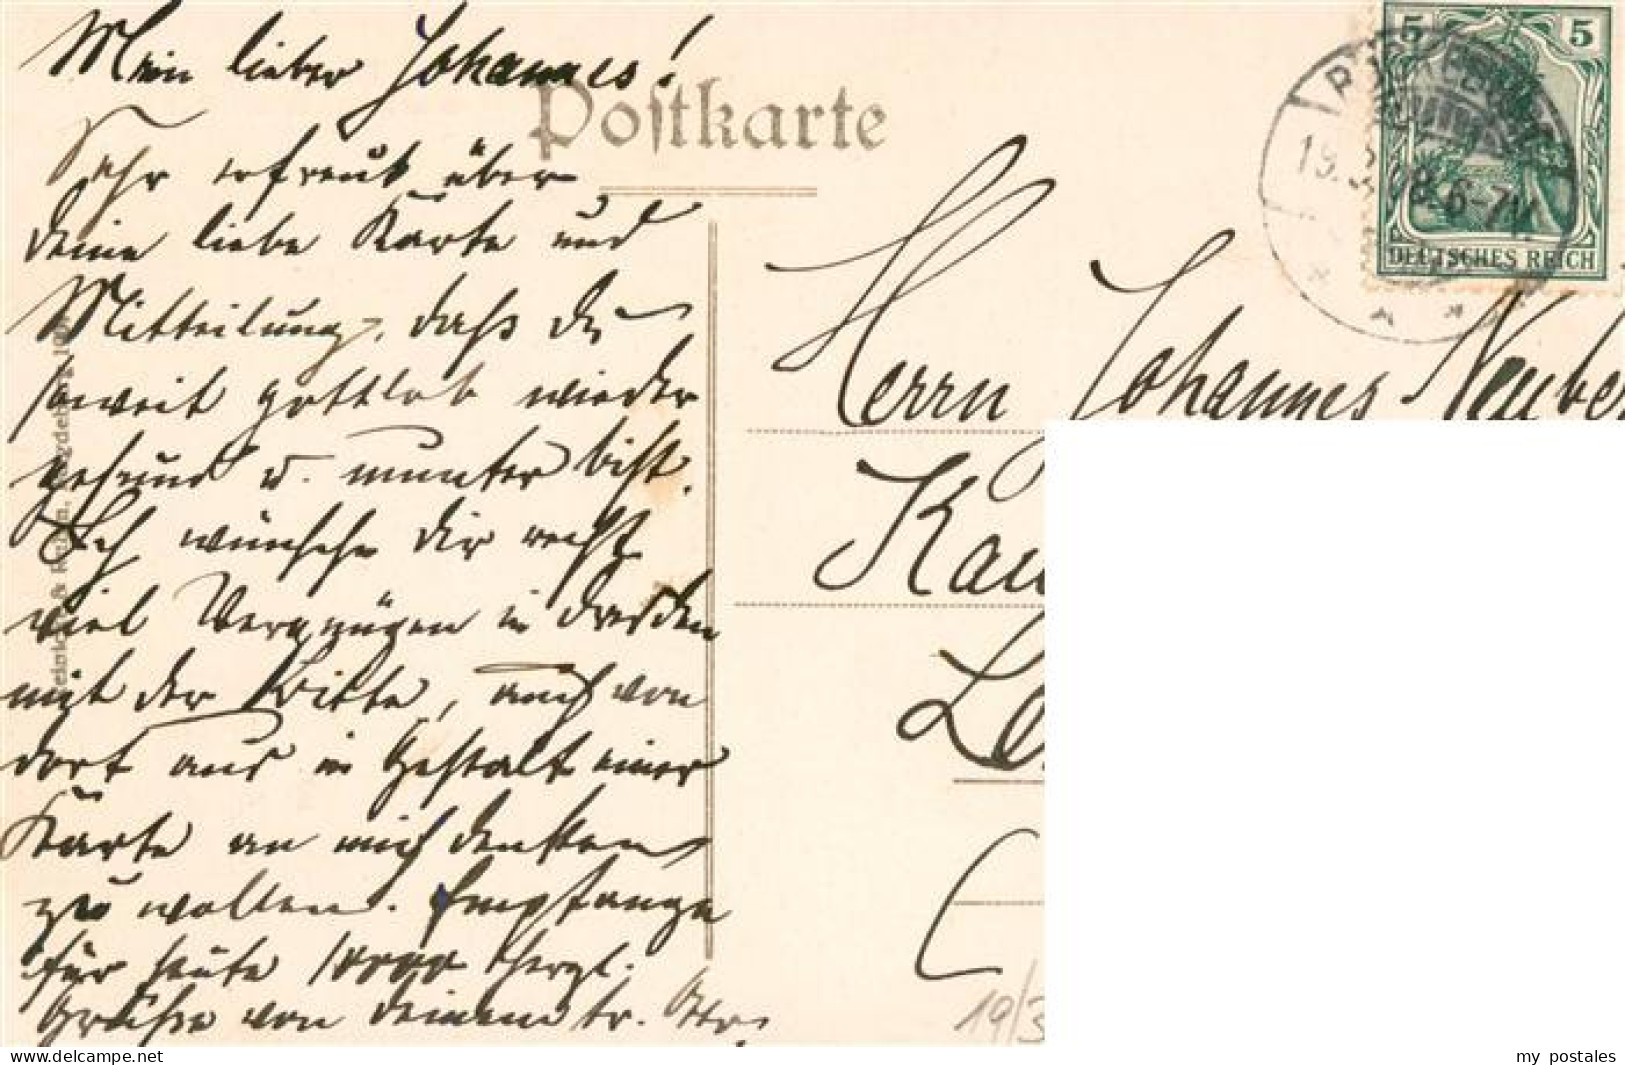 Mein lieber Johannes!
Postkarte
Sehr erfreut über
deine liebe Karte und
Mitteilung, daß du
soweit gottlob wieder
gesund u. munter bist.
Ich wünsche dir recht
viel Vergnügen in Dresden
mit der Bitte, auch von
dort aus in Gestalt einer
Karte an mich denken
zu wollen. Empfange
für heute 10000 herzl.
Grüße von deinem tr.
5 5
DEUTSCHES REICH
19.3. 8.6-7N
Herrn Johannes Neuber
Kau
Le
19/3
my postales